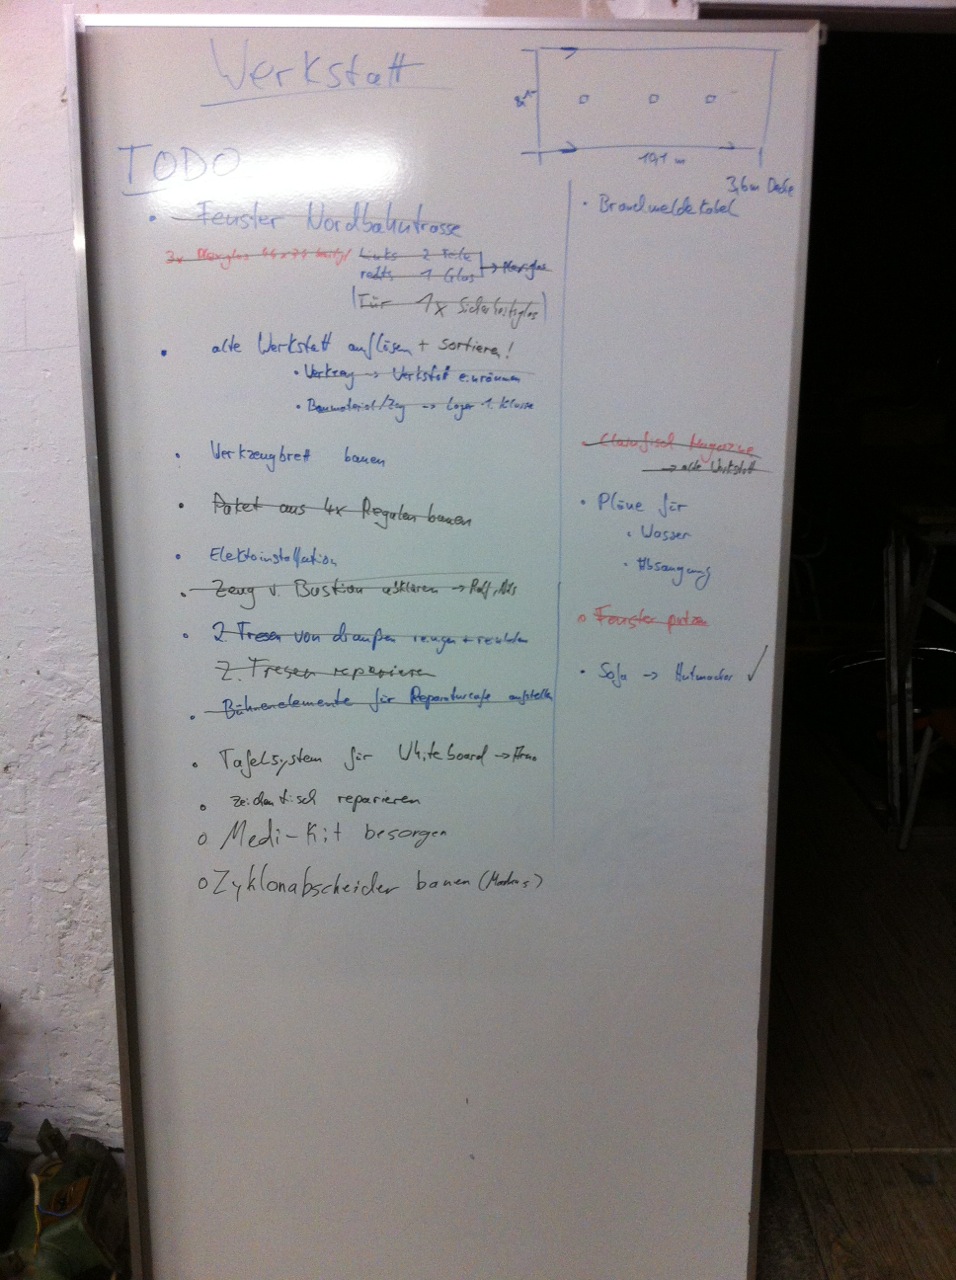 Werkstatt
10,1 m
3,6m Decke
TODO
Fenster Nordbahntrasse
Links 2 Teile
rechts 1 Glas
→ Plexiglas
Tür 1x Sicherheitsglas
alte Werkstatt auflösen + sortieren!
→ Werkstatt einräumen
Baumaterial/Zeug → Lager 1. Klasse
Werkzeugbrett bauen
Paket aus 4x Regalen bauen
Elektoinstallation
Zeug v. Bastion abklären → Ralf,
2 Tresen von draußen
2. Tresen reparieren
Bühnenelemente für Reparaturcafe aufstellen
Tafelsystem für Whiteboard → Arno
Zeichentisch reparieren
Medi-Kit besorgen
Zyklonabscheider bauen
Brandmeldekabel
Magazine
→ alte Werkstatt
Pläne für
Wasser
Absaugung
Fenster putzen
Sofa → Hutmacher ✓